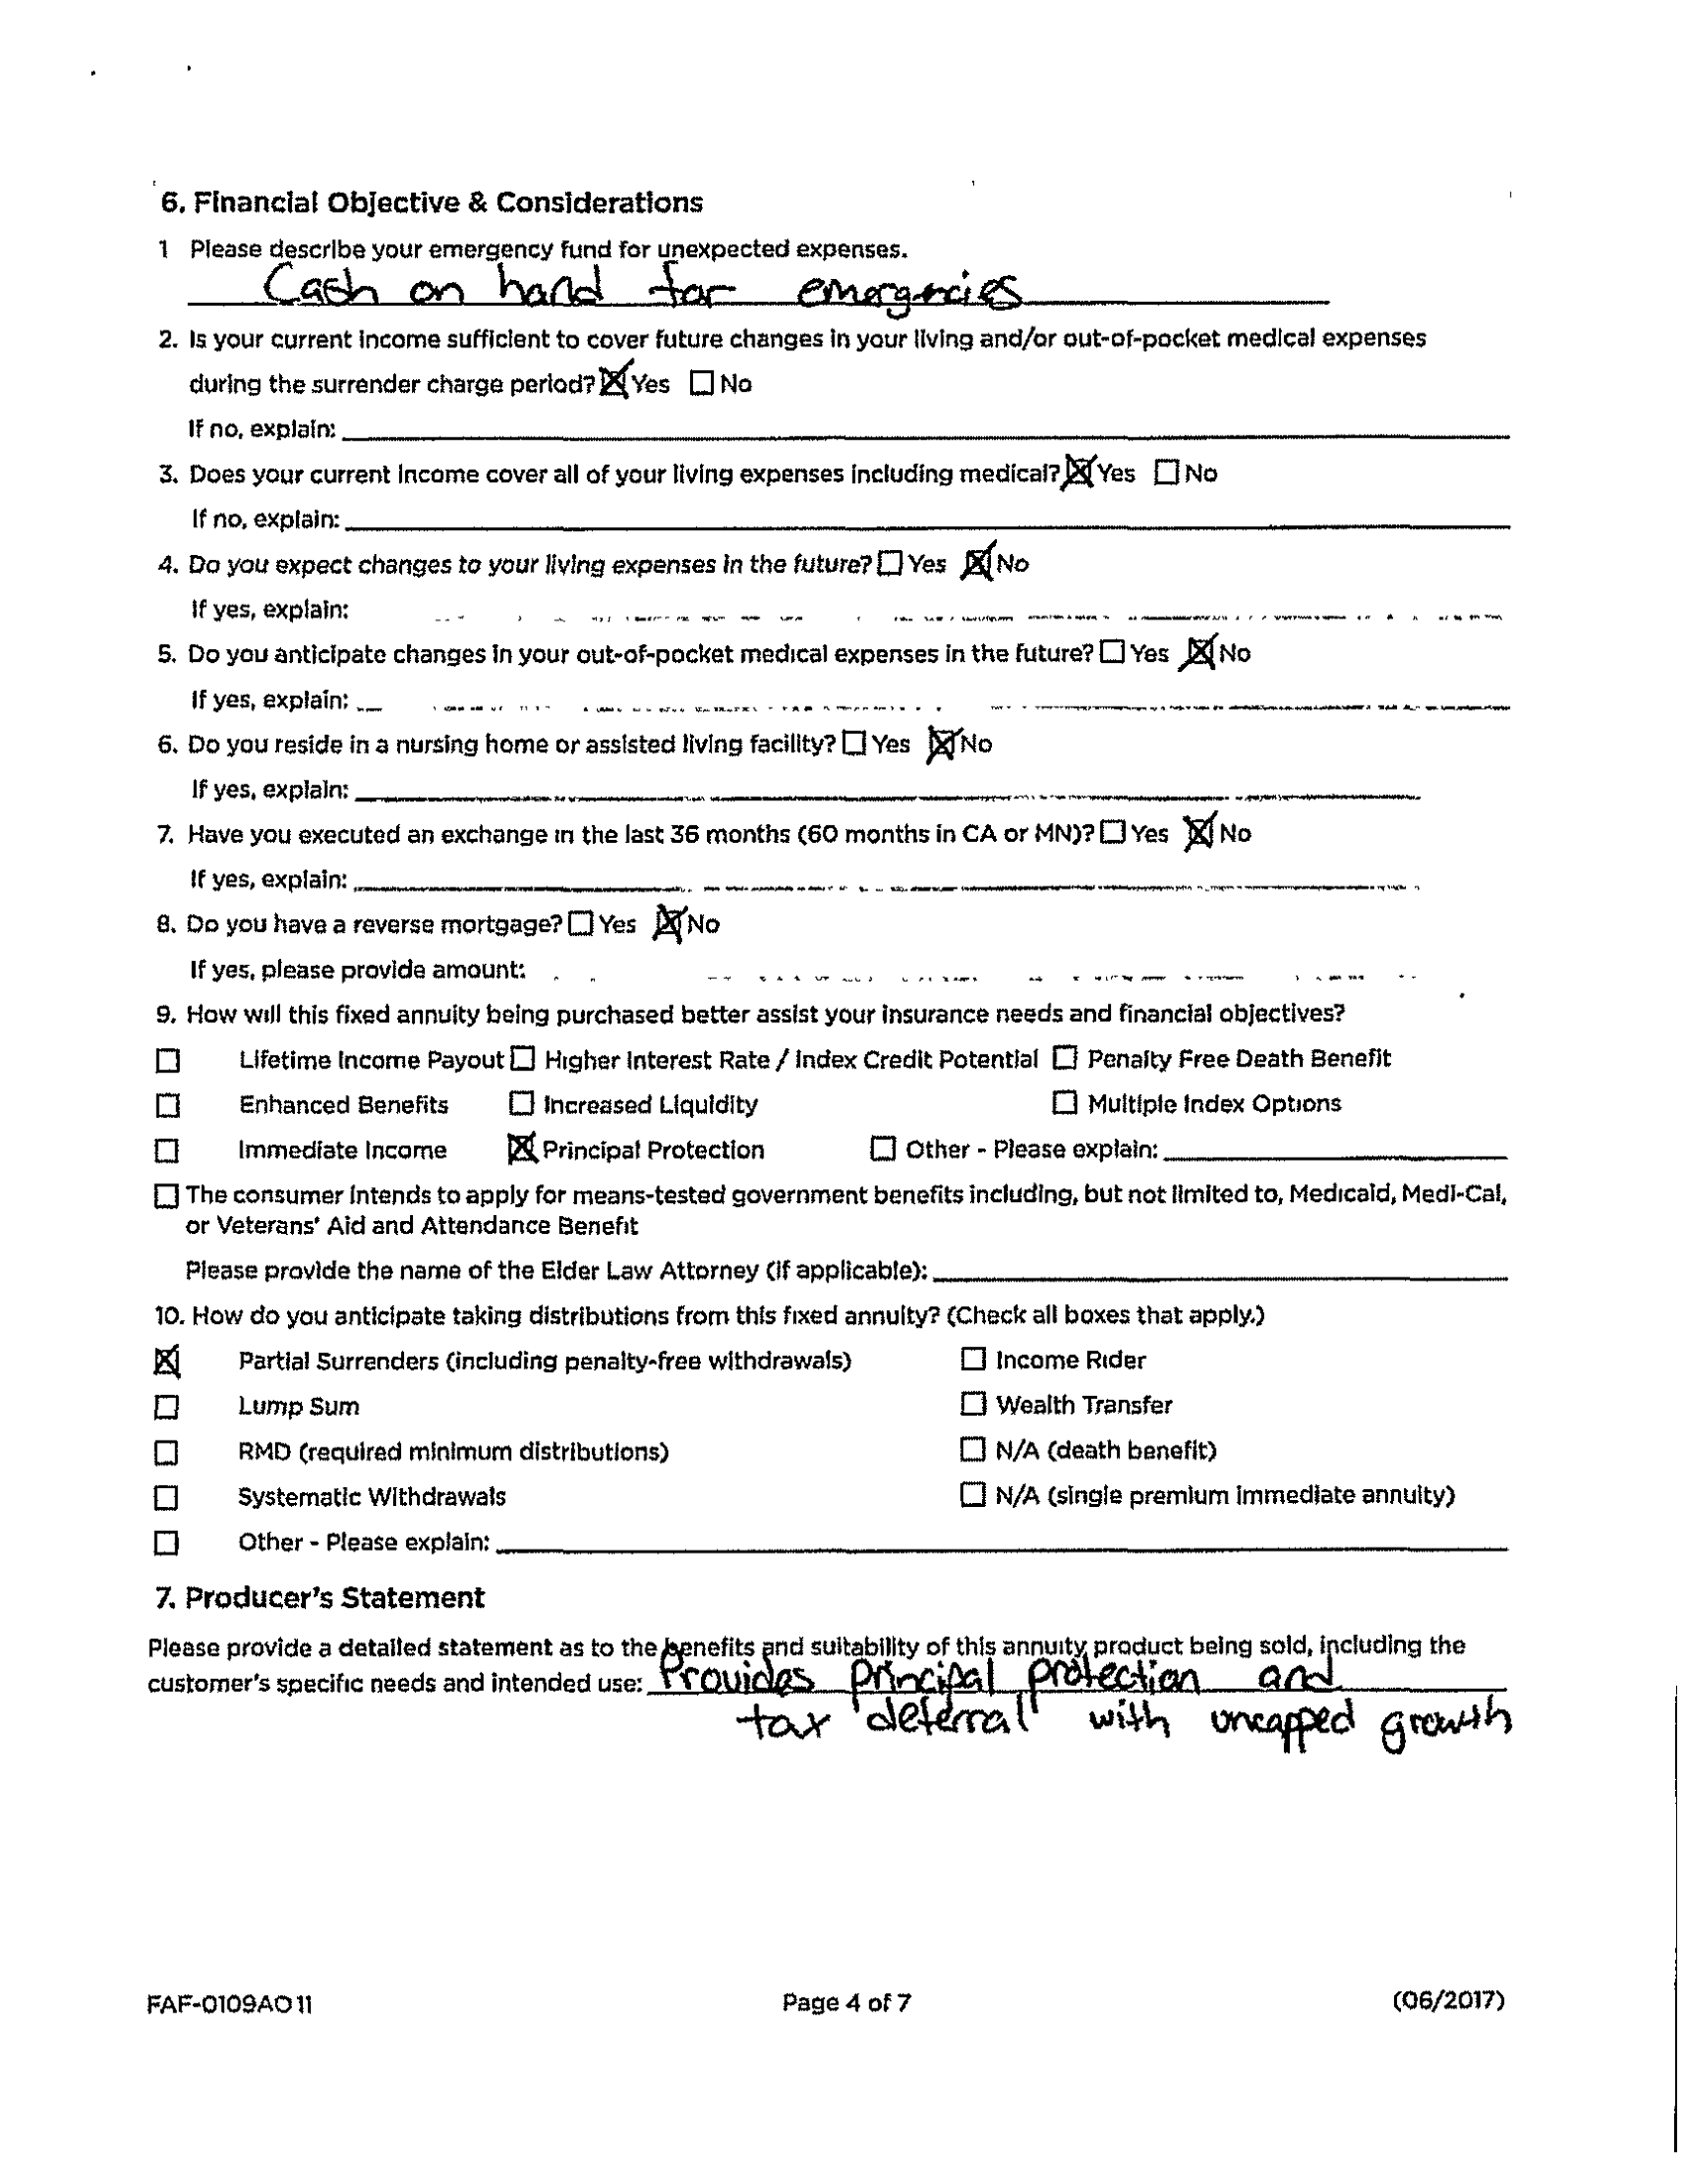 6. Financial Objective & Considerations
1 Please describe your emergency fund for unexpected expenses.
Cash on hand for emergencies
2. Is your current income sufficient to cover future changes in your living and/or out-of-pocket medical expenses
during the surrender charge period? ☒ Yes ☐ No
If no, explain:
3. Does your current income cover all of your living expenses including medical? ☒ Yes ☐ No
If no, explain:
4. Do you expect changes to your living expenses in the future? ☐ Yes ☒ No
If yes, explain:
5. Do you anticipate changes in your out-of-pocket medical expenses in the future? ☐ Yes ☒ No
If yes, explain:
6. Do you reside in a nursing home or assisted living facility? ☐ Yes ☒ No
If yes, explain:
7. Have you executed an exchange in the last 36 months (60 months in CA or MN)? ☐ Yes ☒ No
If yes, explain:
8. Do you have a reverse mortgage? ☐ Yes ☒ No
If yes, please provide amount:
9. How will this fixed annuity being purchased better assist your insurance needs and financial objectives?
☐ Lifetime Income Payout ☐ Higher Interest Rate / Index Credit Potential ☐ Penalty Free Death Benefit
☐ Enhanced Benefits ☐ Increased Liquidity ☐ Multiple Index Options
☐ Immediate Income ☒ Principal Protection ☐ Other - Please explain:
☐ The consumer intends to apply for means-tested government benefits including, but not limited to, Medicaid, Medi-Cal,
or Veterans' Aid and Attendance Benefit
Please provide the name of the Elder Law Attorney (if applicable):
10. How do you anticipate taking distributions from this fixed annuity? (Check all boxes that apply.)
☒ Partial Surrenders (including penalty-free withdrawals) ☐ Income Rider
☐ Lump Sum ☐ Wealth Transfer
☐ RMD (required minimum distributions) ☐ N/A (death benefit)
☐ Systematic Withdrawals ☐ N/A (single premium immediate annuity)
☐ Other - Please explain:
7. Producer's Statement
Please provide a detailed statement as to the benefits and suitability of this annuity product being sold, including the
customer's specific needs and intended use: Provides principal protection and
tax deferral with uncapped growth
FAF-0109AO 11 Page 4 of 7 (06/2017)